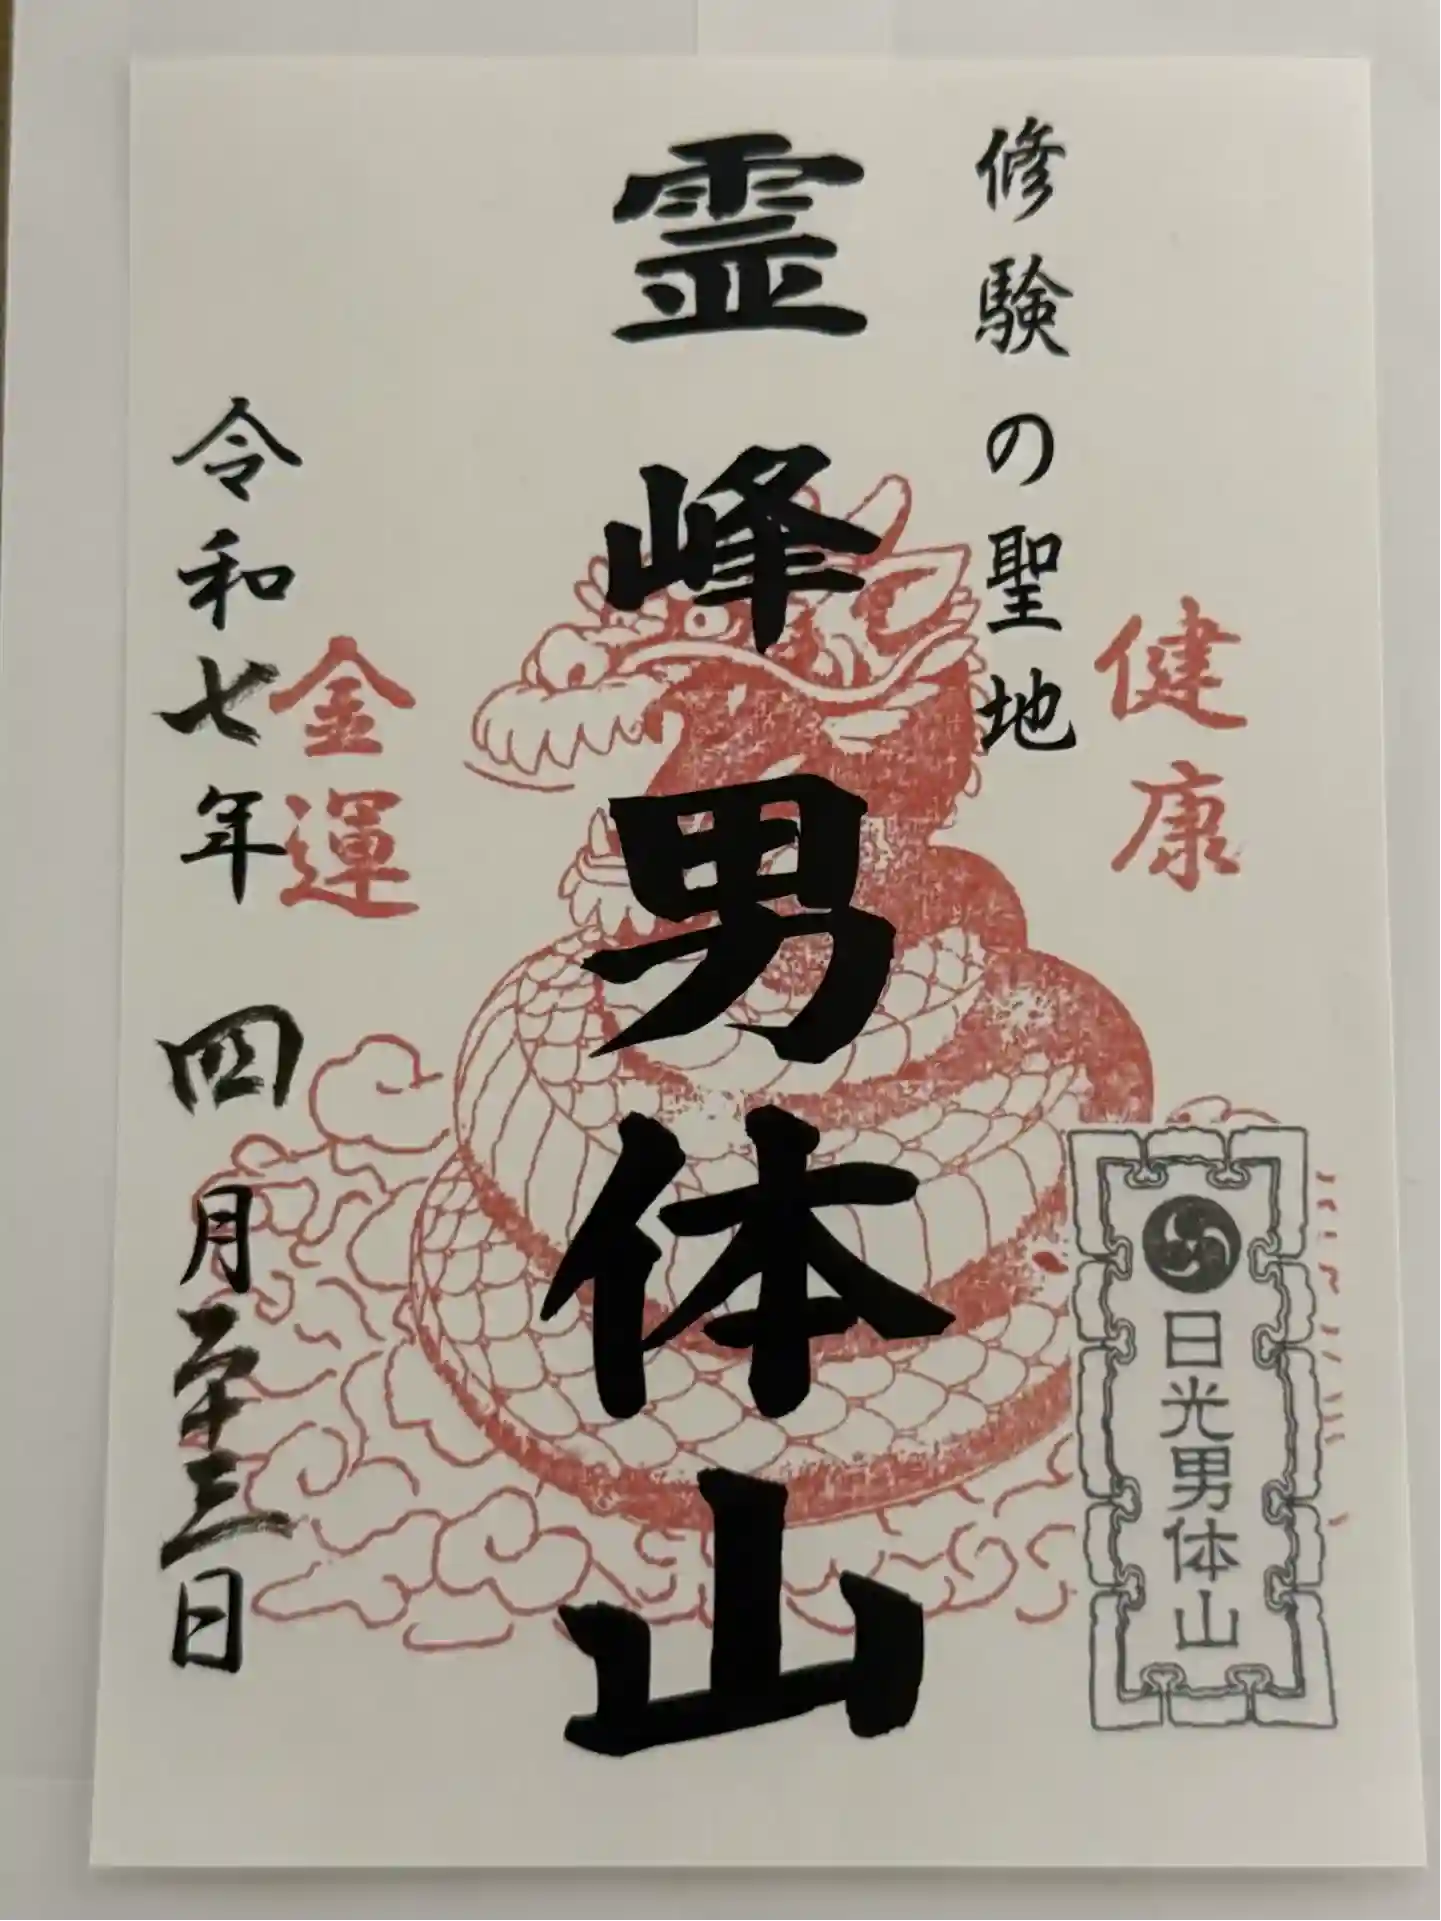 修験の聖地
健康
霊峰男体山
金運
令和七年四月二十三日
日光男体山